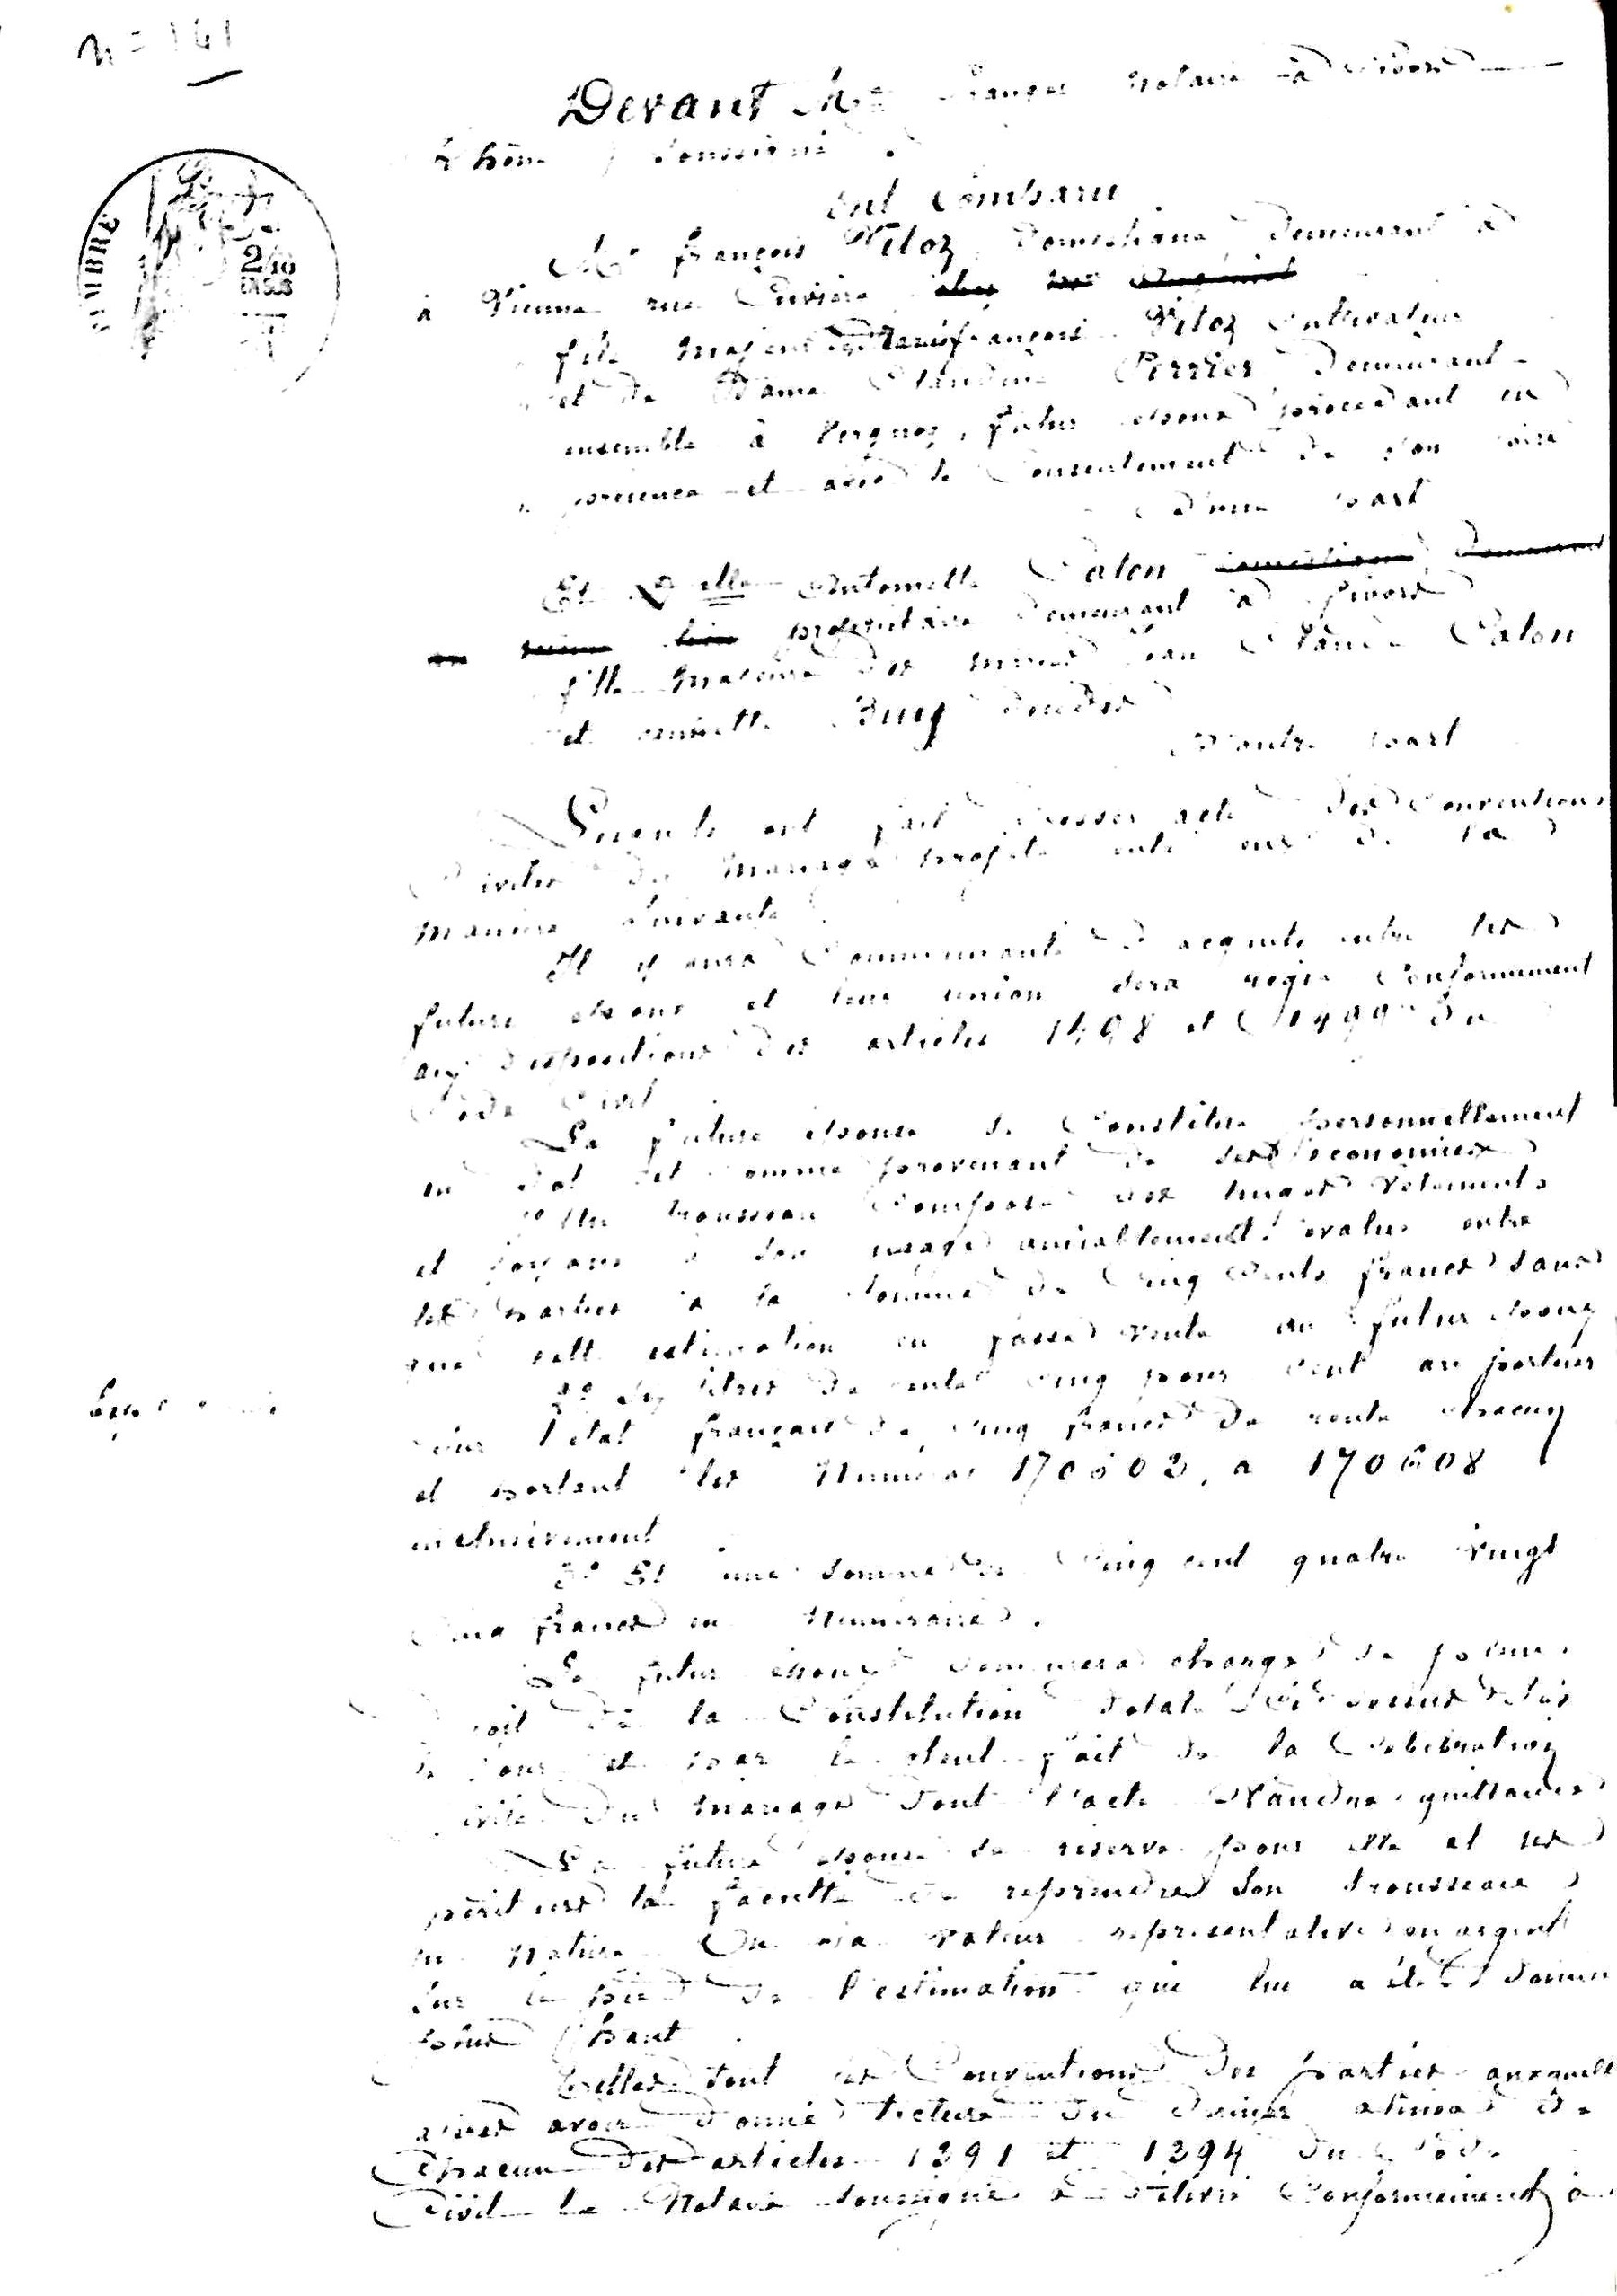 n° 141
TIMBRE
2/10
EN SUS
Devant Me françois Notaire à Givors
Rhône, soussigné.
Ont Comparu
Mr françois Vitoz domestique demeurant à
à Vienne rue Cuvière
fils majeur de françois Vitoz Cultivateur
et de Dame Claudine Perrier demeurant
ensemble à , futur époux procédant en
présence et avec le Consentement de son père
d'une part
Et Delle Antoinette Calon domestique demeurant
propriétaire demeurant à Givors
fille majeure des mariés Jean Claude Calon
et annette décédés
D'autre part
Lesquels ont fait dresser acte des Conventions
Civiles du mariage projeté entre eux de la
manière suivante
Il y aura Communauté d'acquets entre les
futurs époux et leur union sera régie Conformément
aux dispositions des articles 1498 et 1499 du
Code Civil
La future épouse se Constitue personnellement
en dot et comme provenant de ses économies
1° Un trousseau Composé des linges vêtements
et joyaux à son usage amiablement évalué entre
les parties à la somme de Cinq Cents francs sans
que cette estimation en fasse vente au futur époux
2° titres de rente cinq pour Cent au porteur
sur l'état français de cinq francs de rente chacun
et portant les Numéros 170603 a 170608
inclusivement
3° Et une somme de Cinq cent quatre vingt
cinq francs en Numéraire.
Le futur époux demeurera chargé de
soit de la Constitution dotale
et par le seul fait de la Célébration
civile du mariage dont l'acte vaudra quittance
La future épouse se réserve pour elle et ses
héritiers la faculté de reprendre son trousseau
en Nature Ou sa valeur représentative en argent
sur le pied de l'estimation qui lui a été donnée
plus haut.
Telles sont les Conventions des parties auxquelles
après avoir donné lecture du dernier alinéa de
Chacun des articles 1391 et 1394 du Code
Civil le Notaire soussigné a délivré Conformément à